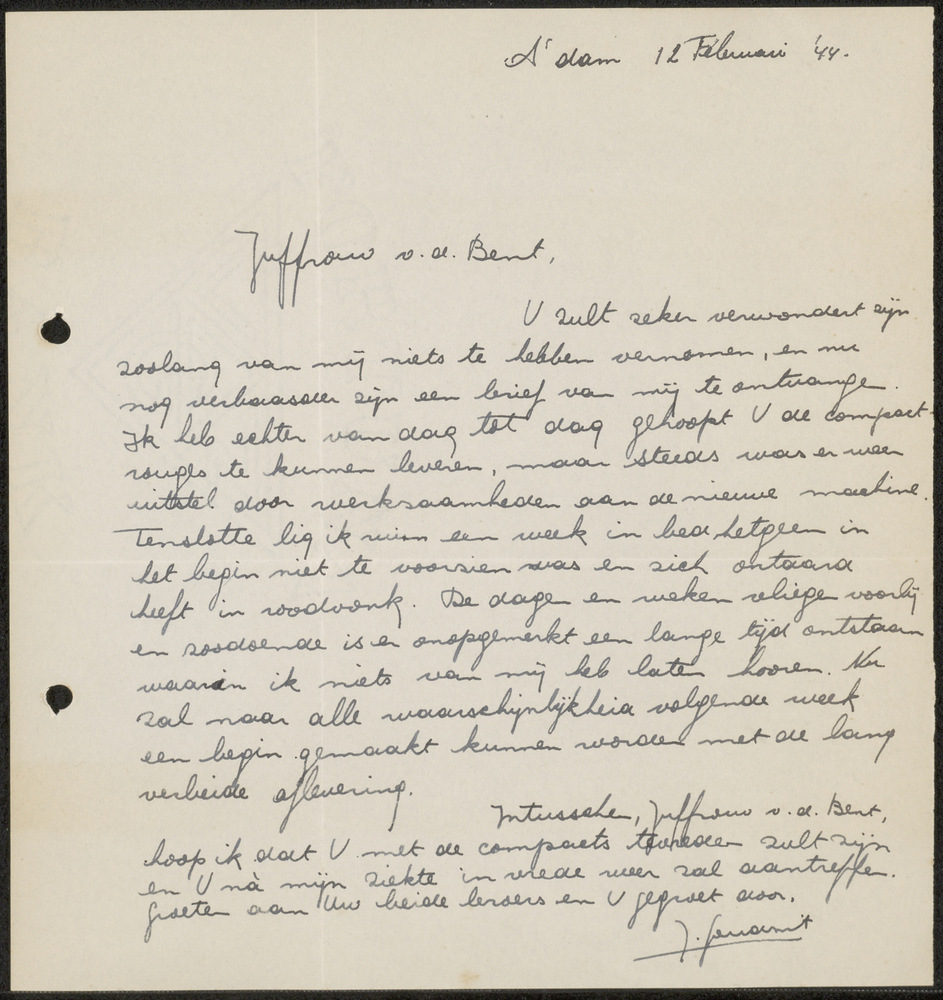 A'dam 12 Februari '44.
Juffrouw v.d. Bent,
U zult zeker verwondert zijn
zoolang van mij niets te hebben vernomen, en nu
nog verbaasder zijn een brief van mij te ontvangen.
Ik heb echter van dag tot dag gehoopt U de compact-
rouges te kunnen leveren, maar steeds was er weer
uitstel door werkzaamheden aan de nieuwe machine.
Tenslotte lig ik ruim een week in bed, hetgeen in
het begin niet te voorzien was en zich ontaard
heeft in roodvonk. De dagen en weken vliegen voorbij
en zoodoende is er onopgemerkt een lange tijd ontstaan
waarin ik niets van mij heb laten hooren. Nu
zal naar alle waarschijnlijkheid volgende week
een begin gemaakt kunnen worden met de lang
verbeide aflevering.
Intusschen, Juffrouw v.d. Bent,
hoop ik dat U met de compacts tevreden zult zijn
en U nà mijn ziekte in vrede weer zal aantreffen.
Groeten aan Uw beide broers en U gegroet door.
J.